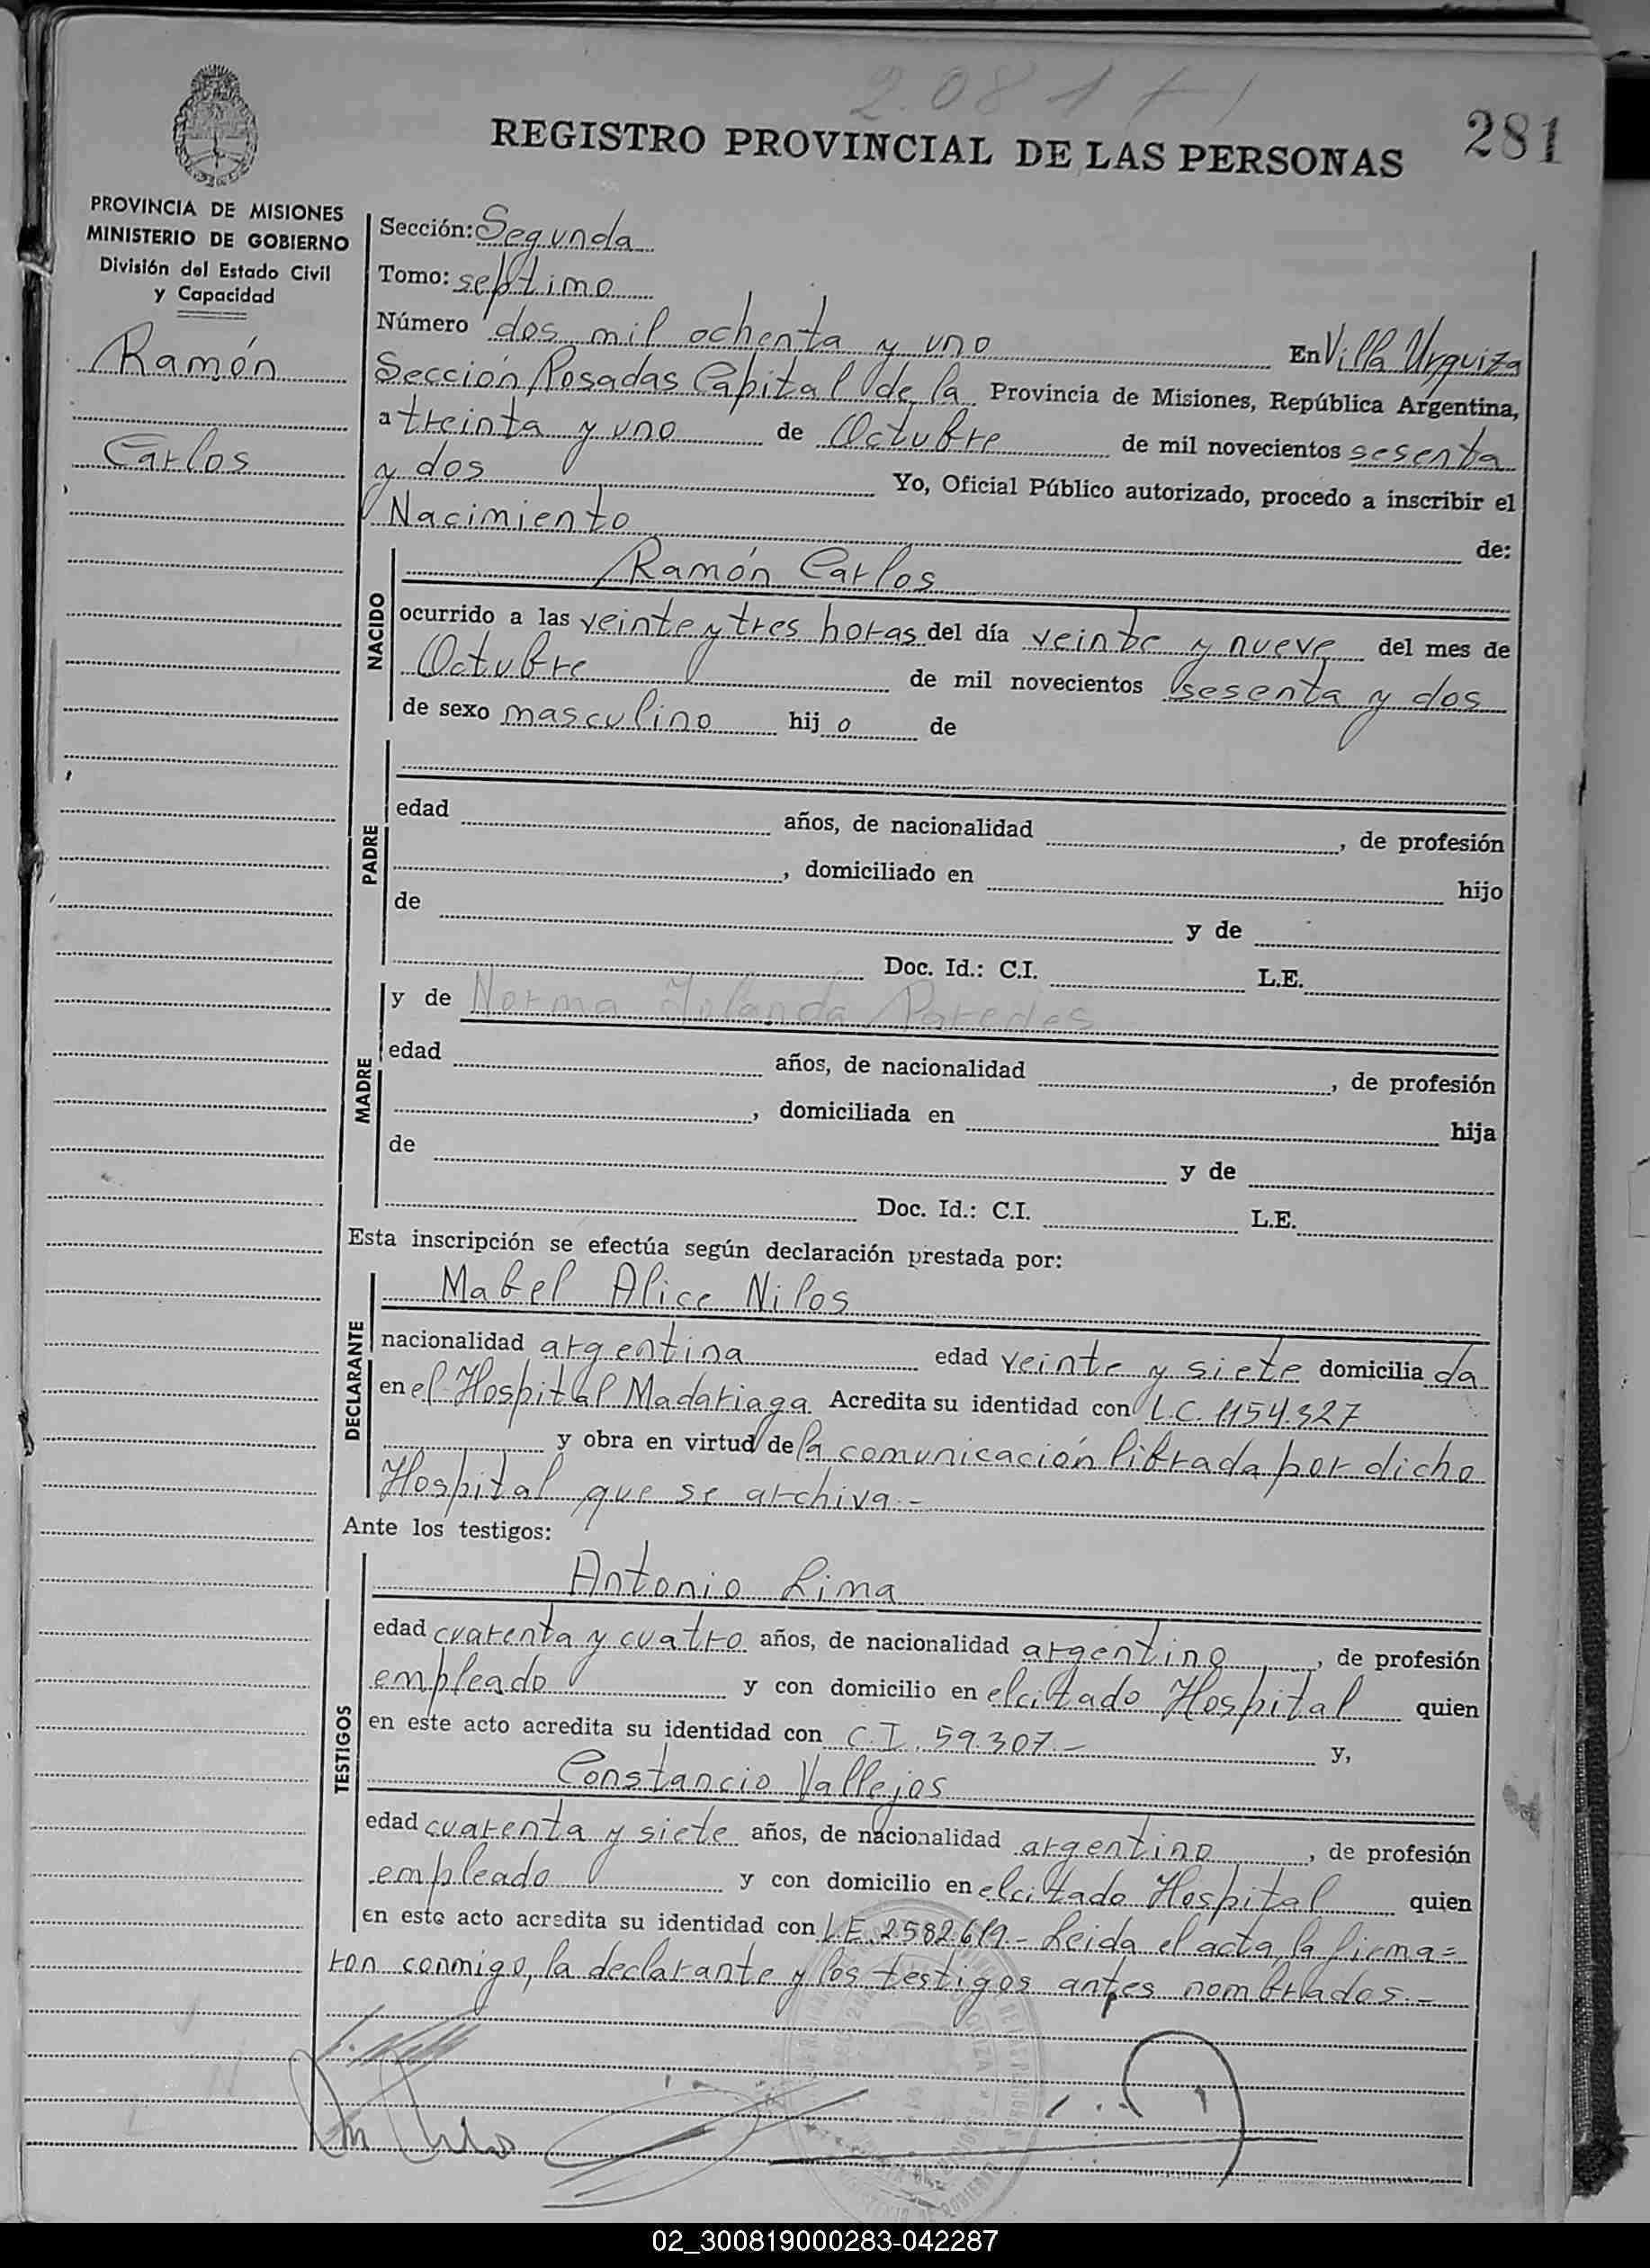 2081
281
REGISTRO PROVINCIAL DE LAS PERSONAS
PROVINCIA DE MISIONES
MINISTERIO DE GOBIERNO
División del Estado Civil
y Capacidad
Ramón
Carlos
Sección: Segunda
Tomo: septimo
Número dos mil ochenta y uno En Villa Urquiza
Sección Posadas Capital de la Provincia de Misiones, República Argentina,
a treinta y uno de Octubre de mil novecientos sesenta
y dos Yo, Oficial Público autorizado, procedo a inscribir el
Nacimiento de:
NACIDO
Ramón Carlos
ocurrido a las veinte y tres horas del día veinte y nueve del mes de
Octubre de mil novecientos sesenta y dos
de sexo masculino hijo de
PADRE
edad años, de nacionalidad , de profesión
, domiciliado en hijo
de y de
Doc. Id.: C.I. L.E.
MADRE
y de Norma Yolanda Paredes
edad años, de nacionalidad , de profesión
, domiciliada en hija
de y de
Doc. Id.: C.I. L.E.
Esta inscripción se efectúa según declaración prestada por:
DECLARANTE
Mabel Alice Nilos
nacionalidad argentina edad veinte y siete domiciliada
en el Hospital Madariaga Acredita su identidad con L.C. 1154.327
y obra en virtud de la comunicación librada por dicho
Hospital que se archiva.-
Ante los testigos:
TESTIGOS
Antonio Lima
edad cuarenta y cuatro años, de nacionalidad argentino, de profesión
empleado y con domicilio en el citado Hospital quien
en este acto acredita su identidad con C.I. 59.307.- y,
Constancio Vallejos
edad cuarenta y siete años, de nacionalidad argentino, de profesión
empleado y con domicilio en el citado Hospital quien
en este acto acredita su identidad con L.E. 2582.619.- Leida el acta, la firma=
ron conmigo, la declarante y los testigos antes nombrados.-
02_300819000283-042287